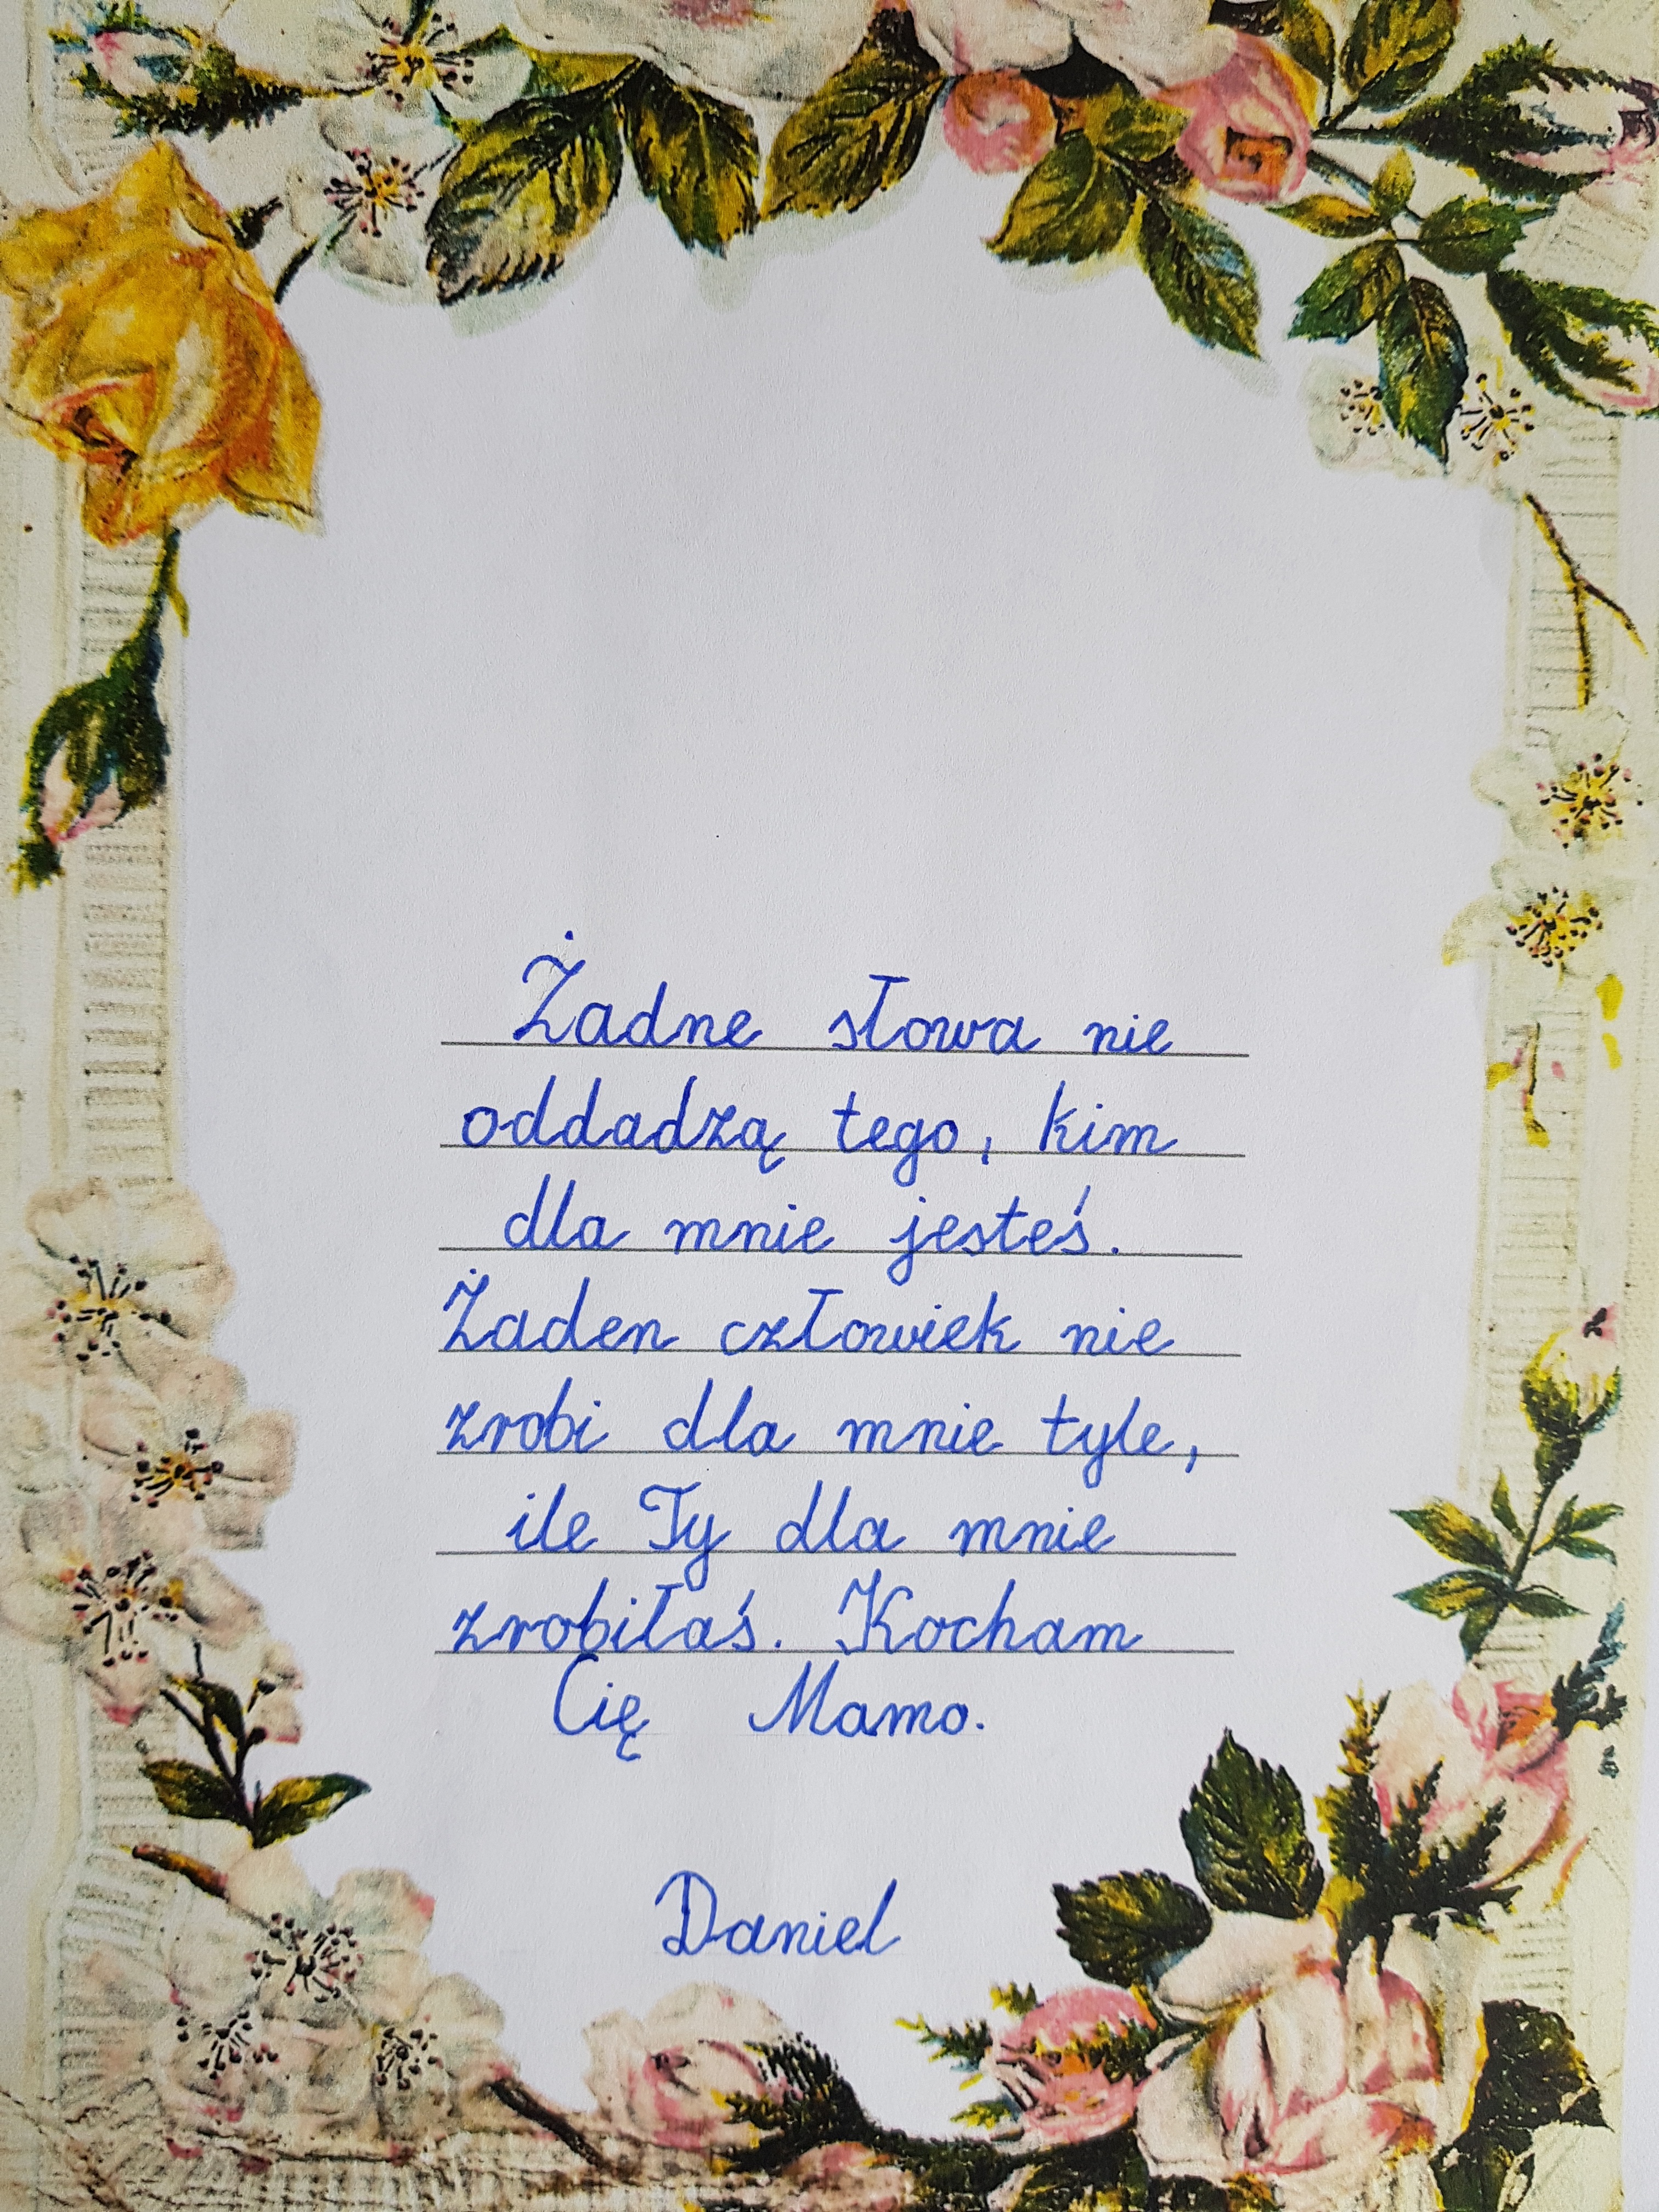 Żadne słowa nie
oddadzą tego, kim
dla mnie jesteś.
Żaden człowiek nie
zrobi dla mnie tyle,
ile Ty dla mnie
zrobiłaś. Kocham
Cię Mamo.
Daniel